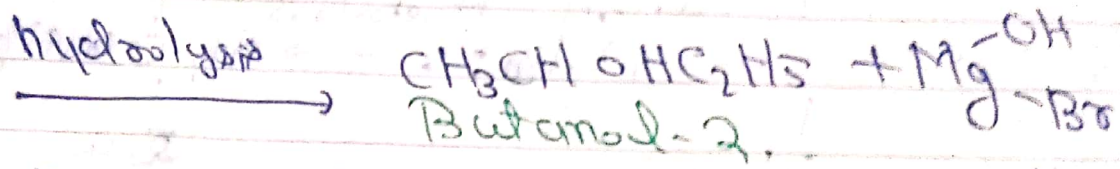 hydrolysis CH3CHOHC2H5 + Mg OH Br
Butanol-2.